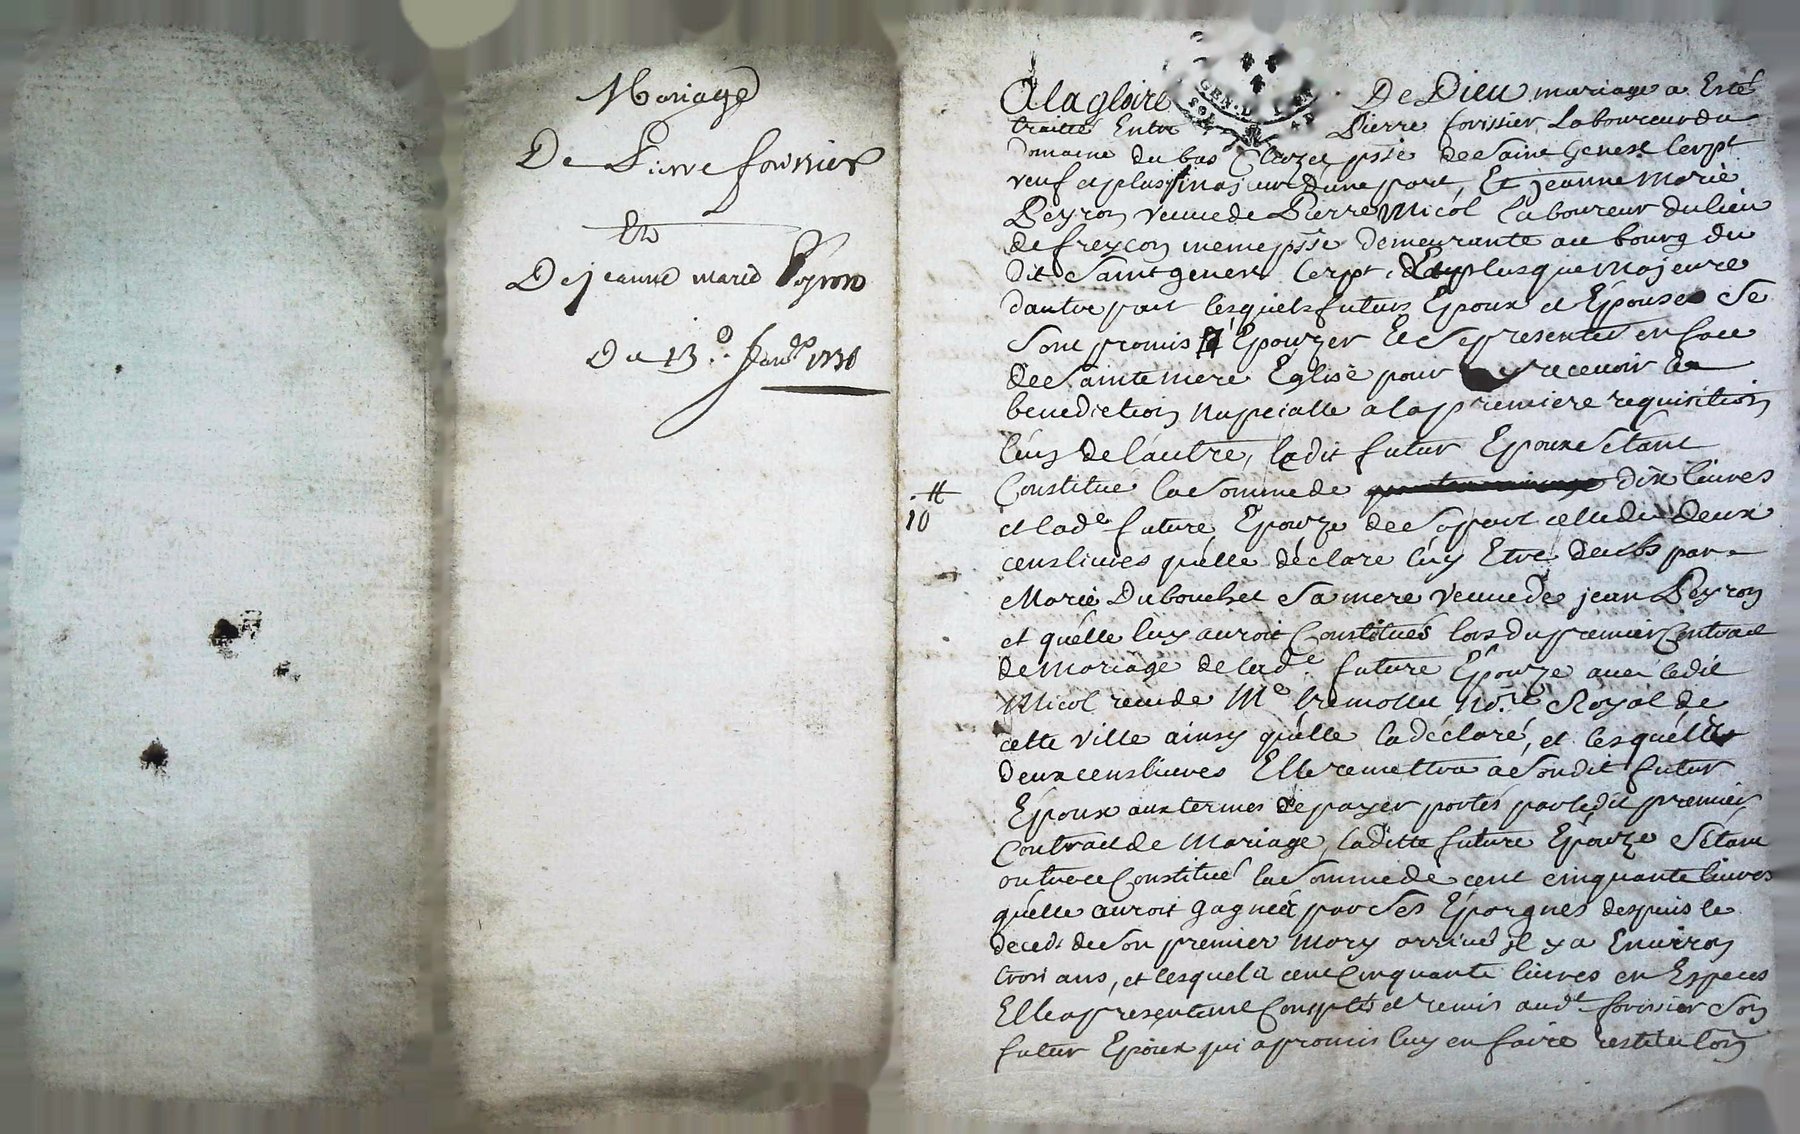 Mariage
De Pierre forissier
Et
De jeanne marie Peyron
Du 13e.
A la gloire De Dieu mariage a Esté
GEN. D
traitté Entre Pierre forissier Laboureur du
domaine du bas psse de Saint Genest Lerpt
veuf et plus majeur d'une part, Et jeanne Marie
Peyron veuve de Pierre Micol Laboureur du lieu
de freycon meme psse demeurante au bourg du
dit Saint genest Lerpt, plus que majeure
dautre part lesquels futurs Epoux et Epouse Se
Sont promis Epouzer Et Se presenter en face
de Sainte mere Eglise pour y recevoir la
benediction nupcialle a la premiere requisition
l'un de l'autre, ledit futur Epoux S'etant
10 ₶
Constitué la Somme de dix livres
et lade future Epouze de Sa part celle de deux
cens livres quelle déclare luy Etre deubs par
Marie Dubouchet Sa mere Veuve de jean Peyron
et quelle luy auroit Constitués lors du premier Contract
de Mariage de lade future Epouze avec ledit
Micol receu de Me tremollet nore Royal de
cette ville ainsy quelle la déclaré, et lesquelles
deux cens livres Elle remettra a Son dit futur
Epoux aux termes de payer portés par ledit premier
Contract de Mariage, laditte future Epouze S'etant
outre ce Constitué la Somme de cent cinquante livres
quelle auroit gagnée par Ses Epargnes despuis le
deceds de Son premier mary arrivé il y a Environ
trois ans, et lesquels cent Cinquante livres en Especes
Elle a presentement Comptés et remis audt forissier Son
futur Epoux qui a promis luy en faire restituton